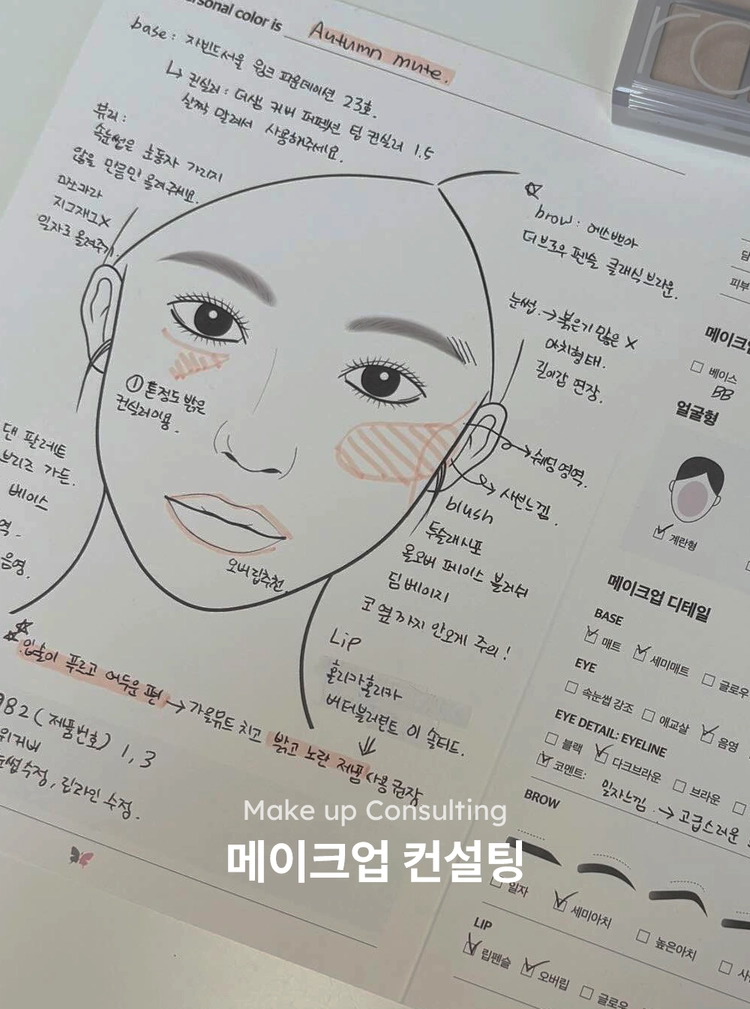 personal color is Autumn mute.
base : 자빈드서울 윙크 파운데이션 23호.
↳ 컨실러 : 더샘 커버 퍼펙션 팁 컨실러 1.5
살짝 말려서 사용해주세요.
뷰러 :
속눈썹은 눈동자 가리지
않을 만큼만 올려주세요.
마스카라
지그재그X
일자로 올려주기.
brow : 에스쁘아
더브로우 펜슬 클래식브라운.
눈썹. → 붉은기 많은 X
아치형태.
길이감 연장.
① 톤정도 밝은
컨실러이용.
→ 쉐딩영역.
→ 사선느낌.
blush
투슬래시포
올오버 페이스 블러쉬
딤베이지
코 옆까지 안오게 주의!
댄 팔레트
브리즈 가든.
베이스
음영.
오버립추천.
Lip
홀리카홀리카
버터블러틴트 이 솔티드.
입술이 푸르고 어두운 편 → 가을뮤트 치고 밝고 노란 제품 사용 권장
982 (제품번호) 1, 3
위커버
눈썹수정, 립라인 수정.
메이크업
베이스
BB
얼굴형
계란형
메이크업 디테일
BASE
매트 세미매트 글로우
EYE
속눈썹 강조 애교살 음영
EYE DETAIL: EYELINE
블랙 다크브라운 브라운
코멘트: 일자느낌. → 고급스러운
BROW
일자 세미아치 높은아치
LIP
립펜슬 오버립 글로우
Make up Consulting
메이크업 컨설팅